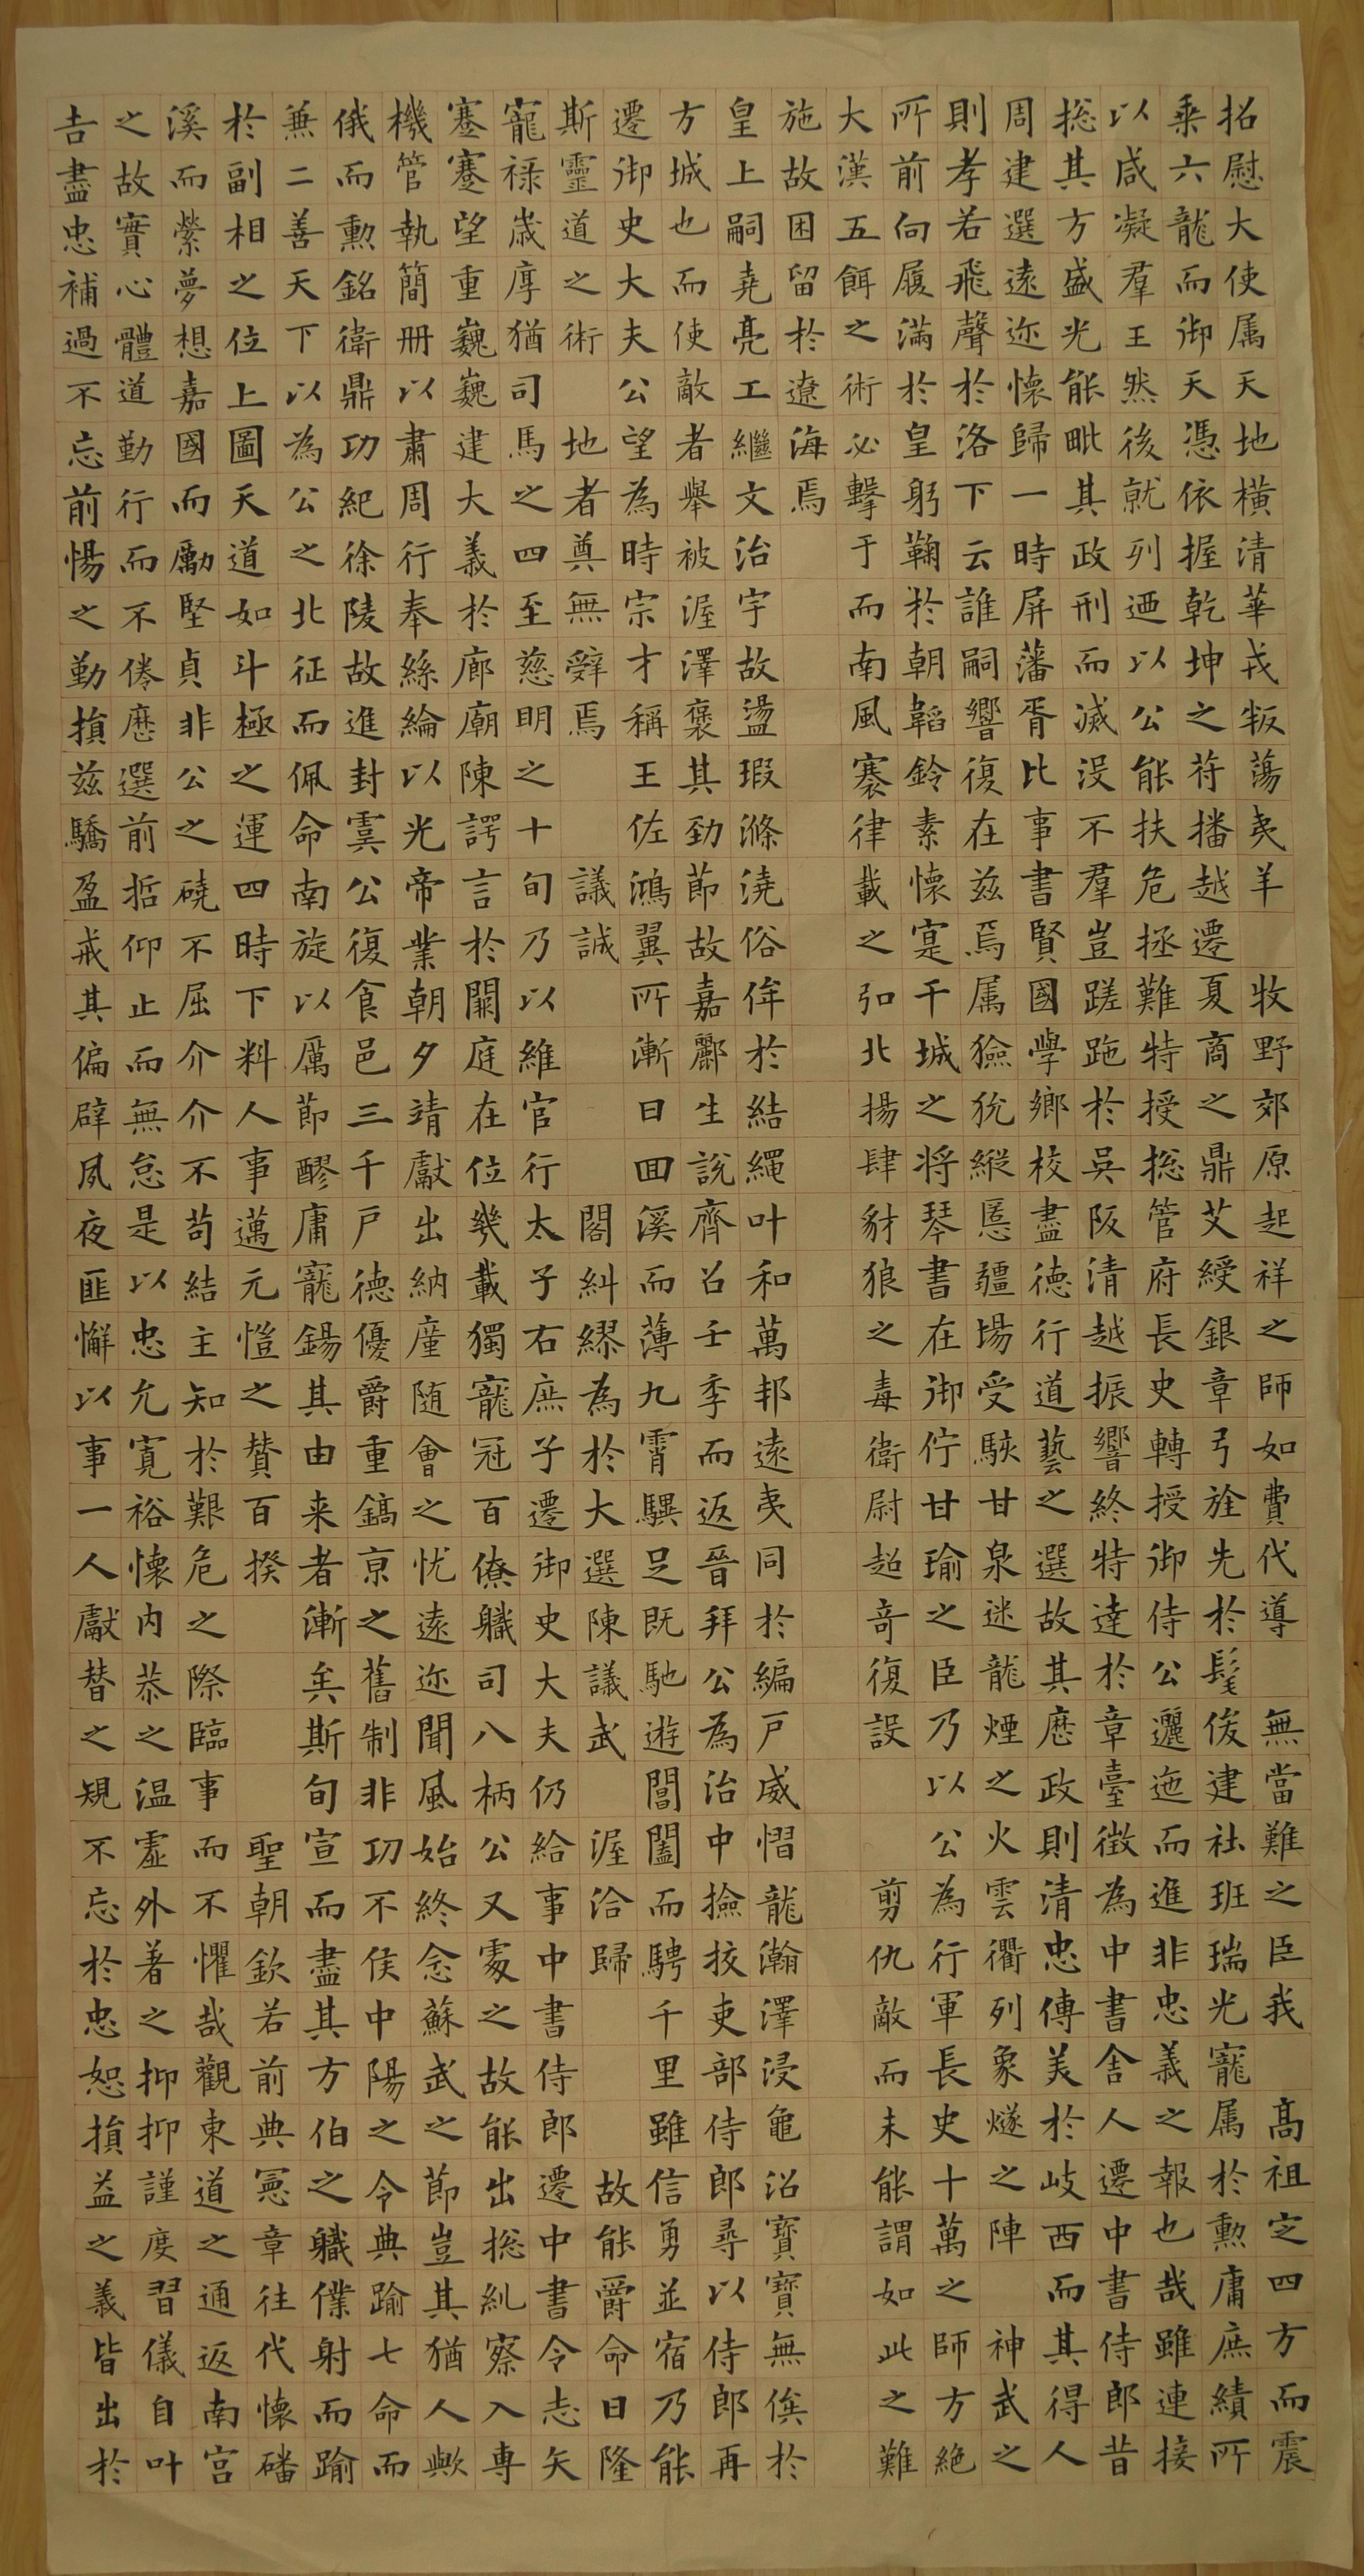 招慰大使属天地橫清華戎叛蕩夷羊 牧野郊原起祥之師如費代導 無當難之臣我 高祖定四方而震
乘六龍而御天憑依握乾坤之符播越遷夏商之鼎艾綬銀章弓旌先於髦俊建社班瑞光寵属於勳庸庶績所
以咸凝羣王然後就列迺以公能扶危拯難特授捴管府長史轉授御侍公邐迤而進非忠義之報也哉雖連接
捴其方盛光能毗其政刑而滅没不羣豈蹉跎於吳阪清越振響終特達於章臺徵為中書舍人遷中書侍郎昔
周建選逺迩懷歸一時屏藩胥比事書賢國學鄉校盡德行道藝之選故其歷政則清忠傳美於岐西而其得人
則孝若飛聲於洛下云誰嗣響復在茲焉属獫狁縱慝疆場受駭甘泉迷龍煙之火雲衢列象燧之陣 神武之
所前向履滿於皇躬鞠於朝韜鈴素懷寔干城之将琴書在御佇甘瑜之臣乃以公為行軍長史十萬之師方絶
大漢五餌之術必擊于而南風褰律載之弘北揚肆豺狼之毒衛尉超奇復設 剪仇敵而未能謂如此之難
施故困留於遼海焉
皇上嗣堯亮工繼文治宇故盪瑕滌澆俗侔於結繩叶和萬邦逺夷同於編戸威慴龍瀚澤浸龜沼寶寶無俟於
方城也而使敵者舉被渥澤褒其勁節故嘉酈生說齊召壬季而返晉拜公為治中撿挍吏部侍郎尋以侍郎再
遷御史大夫公望為時宗才稱王佐鴻翼所漸日囬溪而薄九霄驥足既馳遊閶闔而騁千里雖信勇並宿乃能
斯靈道之術 地者奠無辤焉 議誠 閣糾繆為於大選陳議武 渥洽歸 故能爵命日隆
寵禄崴厚猶司馬之四至慈明之十旬乃以維官行太子右庶子遷御史大夫仍給事中書侍郎遷中書令志矢
蹇蹇望重巍巍建大義於廊廟陳諤言於闕庭在位幾載獨寵冠百僚職司八柄公又處之故能出捴糺察入専
機管執簡冊以肅周行奉絲綸以光帝業朝夕靖獻出納廑随會之忧逺迩聞風始終念蘇武之節豈其猶人歟
俄而勳銘衛鼎功紀徐陵故進封虞公復食邑三千戸德優爵重鎬京之舊制非功不侯中陽之令典踰七命而
兼二善天下以為公之北征而佩命南旋以厲節醪庸寵錫其由来者漸矣斯旬宣而盡其方伯之職僕射而踰
於副相之位上圖天道如斗極之運四時下料人事邁元愷之贊百揆 聖朝欽若前典憲章往代懷磻
溪而縈夢想嘉國而勵堅貞非公之磽不屈介介不苟結主知於艱危之際臨事而不懼哉觀東道之通返南宮
之故實心體道勤行而不倦歷選前哲仰止而無怠是以忠允寬裕懷内恭之温虛外著之抑抑謹度習儀自叶
吉盡忠補過不忘前惕之勤損茲驕盈戒其偏辟夙夜匪懈以事一人獻替之規不忘於忠恕損益之義皆出於